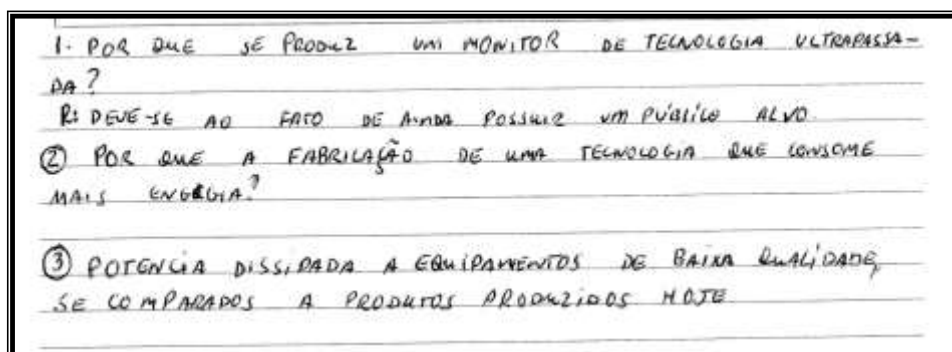 1. POR QUE SE PRODUZ UM MONITOR DE TECNOLOGIA ULTRAPASSA-
DA?
R: DEVE-SE AO FATO DE AINDA POSSUIR UM PÚBLICO ALVO.
② POR QUE A FABRICAÇÃO DE UMA TECNOLOGIA QUE CONSOME
MAIS ENERGIA?
③ POTENCIA DISSIPADA A EQUIPAMENTOS DE BAIXA QUALIDADE,
SE COMPARADOS A PRODUTOS PRODUZIDOS HOJE